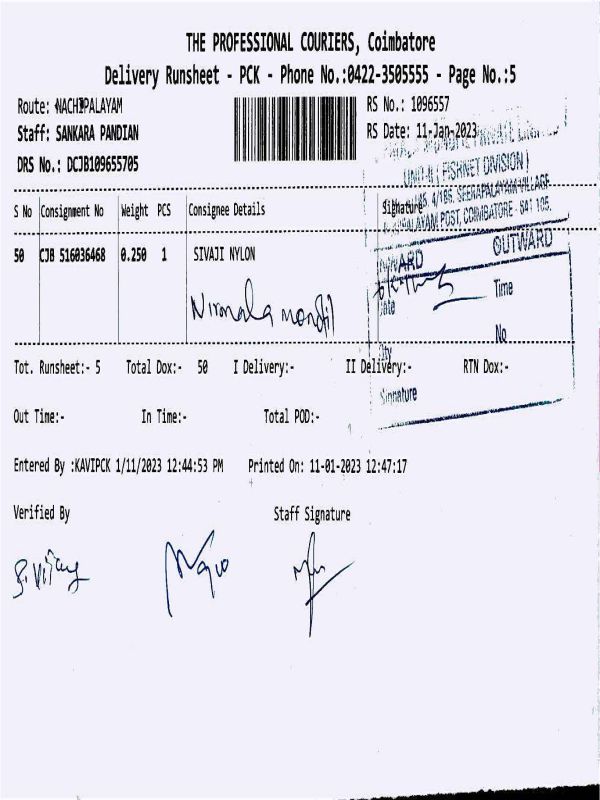 THE PROFESSIONAL COURIERS, Coimbatore
Delivery Runsheet - PCK - Phone No.:0422-3505555 - Page No.:5
Route: NACHIPALAYAM
RS No.: 1096557
Staff: SANKARA PANDIAN
RS Date: 11-Jan-2023
DRS No.: DCJB109655705
UNIT-II ( FISHNET DIVISION )
4/185, SEERAPALAYAM VILLAGE
POST, COIMBATORE - 641 105.
S No Consignment No Weight PCS Consignee Details Signature
50 CJB 516036468 0.250 1 SIVAJI NYLON
INWARD OUTWARD
Date Time
No
Qty
Signature
Nirmala
Tot. Runsheet:- 5 Total Dox:- 50 I Delivery:- II Delivery:- RTN Dox:-
Out Time:- In Time:- Total POD:-
Entered By :KAVIPCK 1/11/2023 12:44:53 PM Printed On: 11-01-2023 12:47:17
Verified By Staff Signature